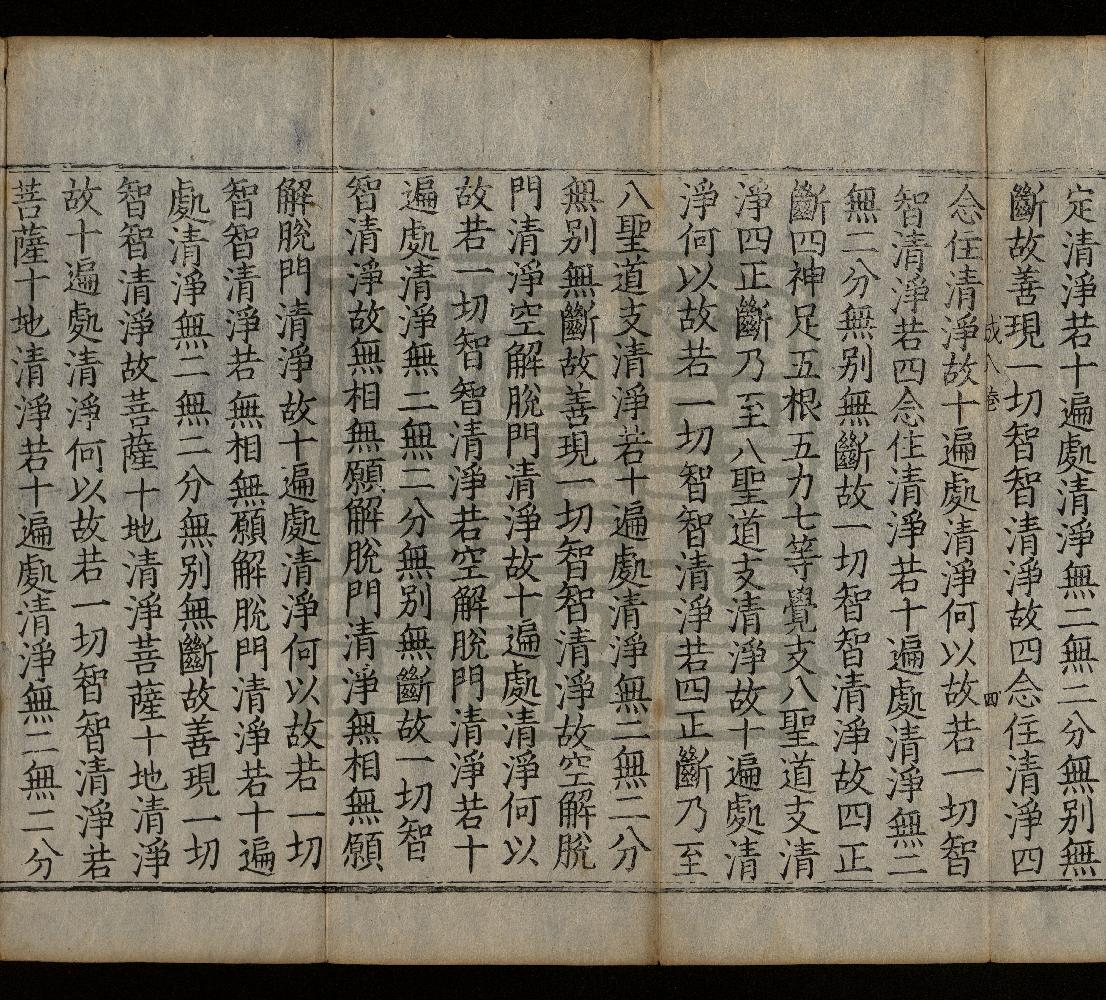 定清淨若十遍處清淨無二無二分無別無
斷故善現一切智智清淨故四念住清淨四
八卷 四
念住清淨故十遍處清淨何以故若一切智
智清淨若四念住清淨若十遍處清淨無二
無二分無別無斷故一切智智清淨故四正
斷四神足五根五力七等覺支八聖道支清
淨四正斷乃至八聖道支清淨故十遍處清
淨何以故若一切智智清淨若四正斷乃至
八聖道支清淨若十遍處清淨無二無二分
無別無斷故善現一切智智清淨故空解脫
門清淨空解脫門清淨故十遍處清淨何以
故若一切智智清淨若空解脫門清淨若十
遍處清淨無二無二分無別無斷故一切智
智清淨故無相無願解脫門清淨無相無願
解脫門清淨故十遍處清淨何以故若一切
智智清淨若無相無願解脫門清淨若十遍
處清淨無二無二分無別無斷故善現一切
智智清淨故菩薩十地清淨菩薩十地清淨
故十遍處清淨何以故若一切智智清淨若
菩薩十地清淨若十遍處清淨無二無二分